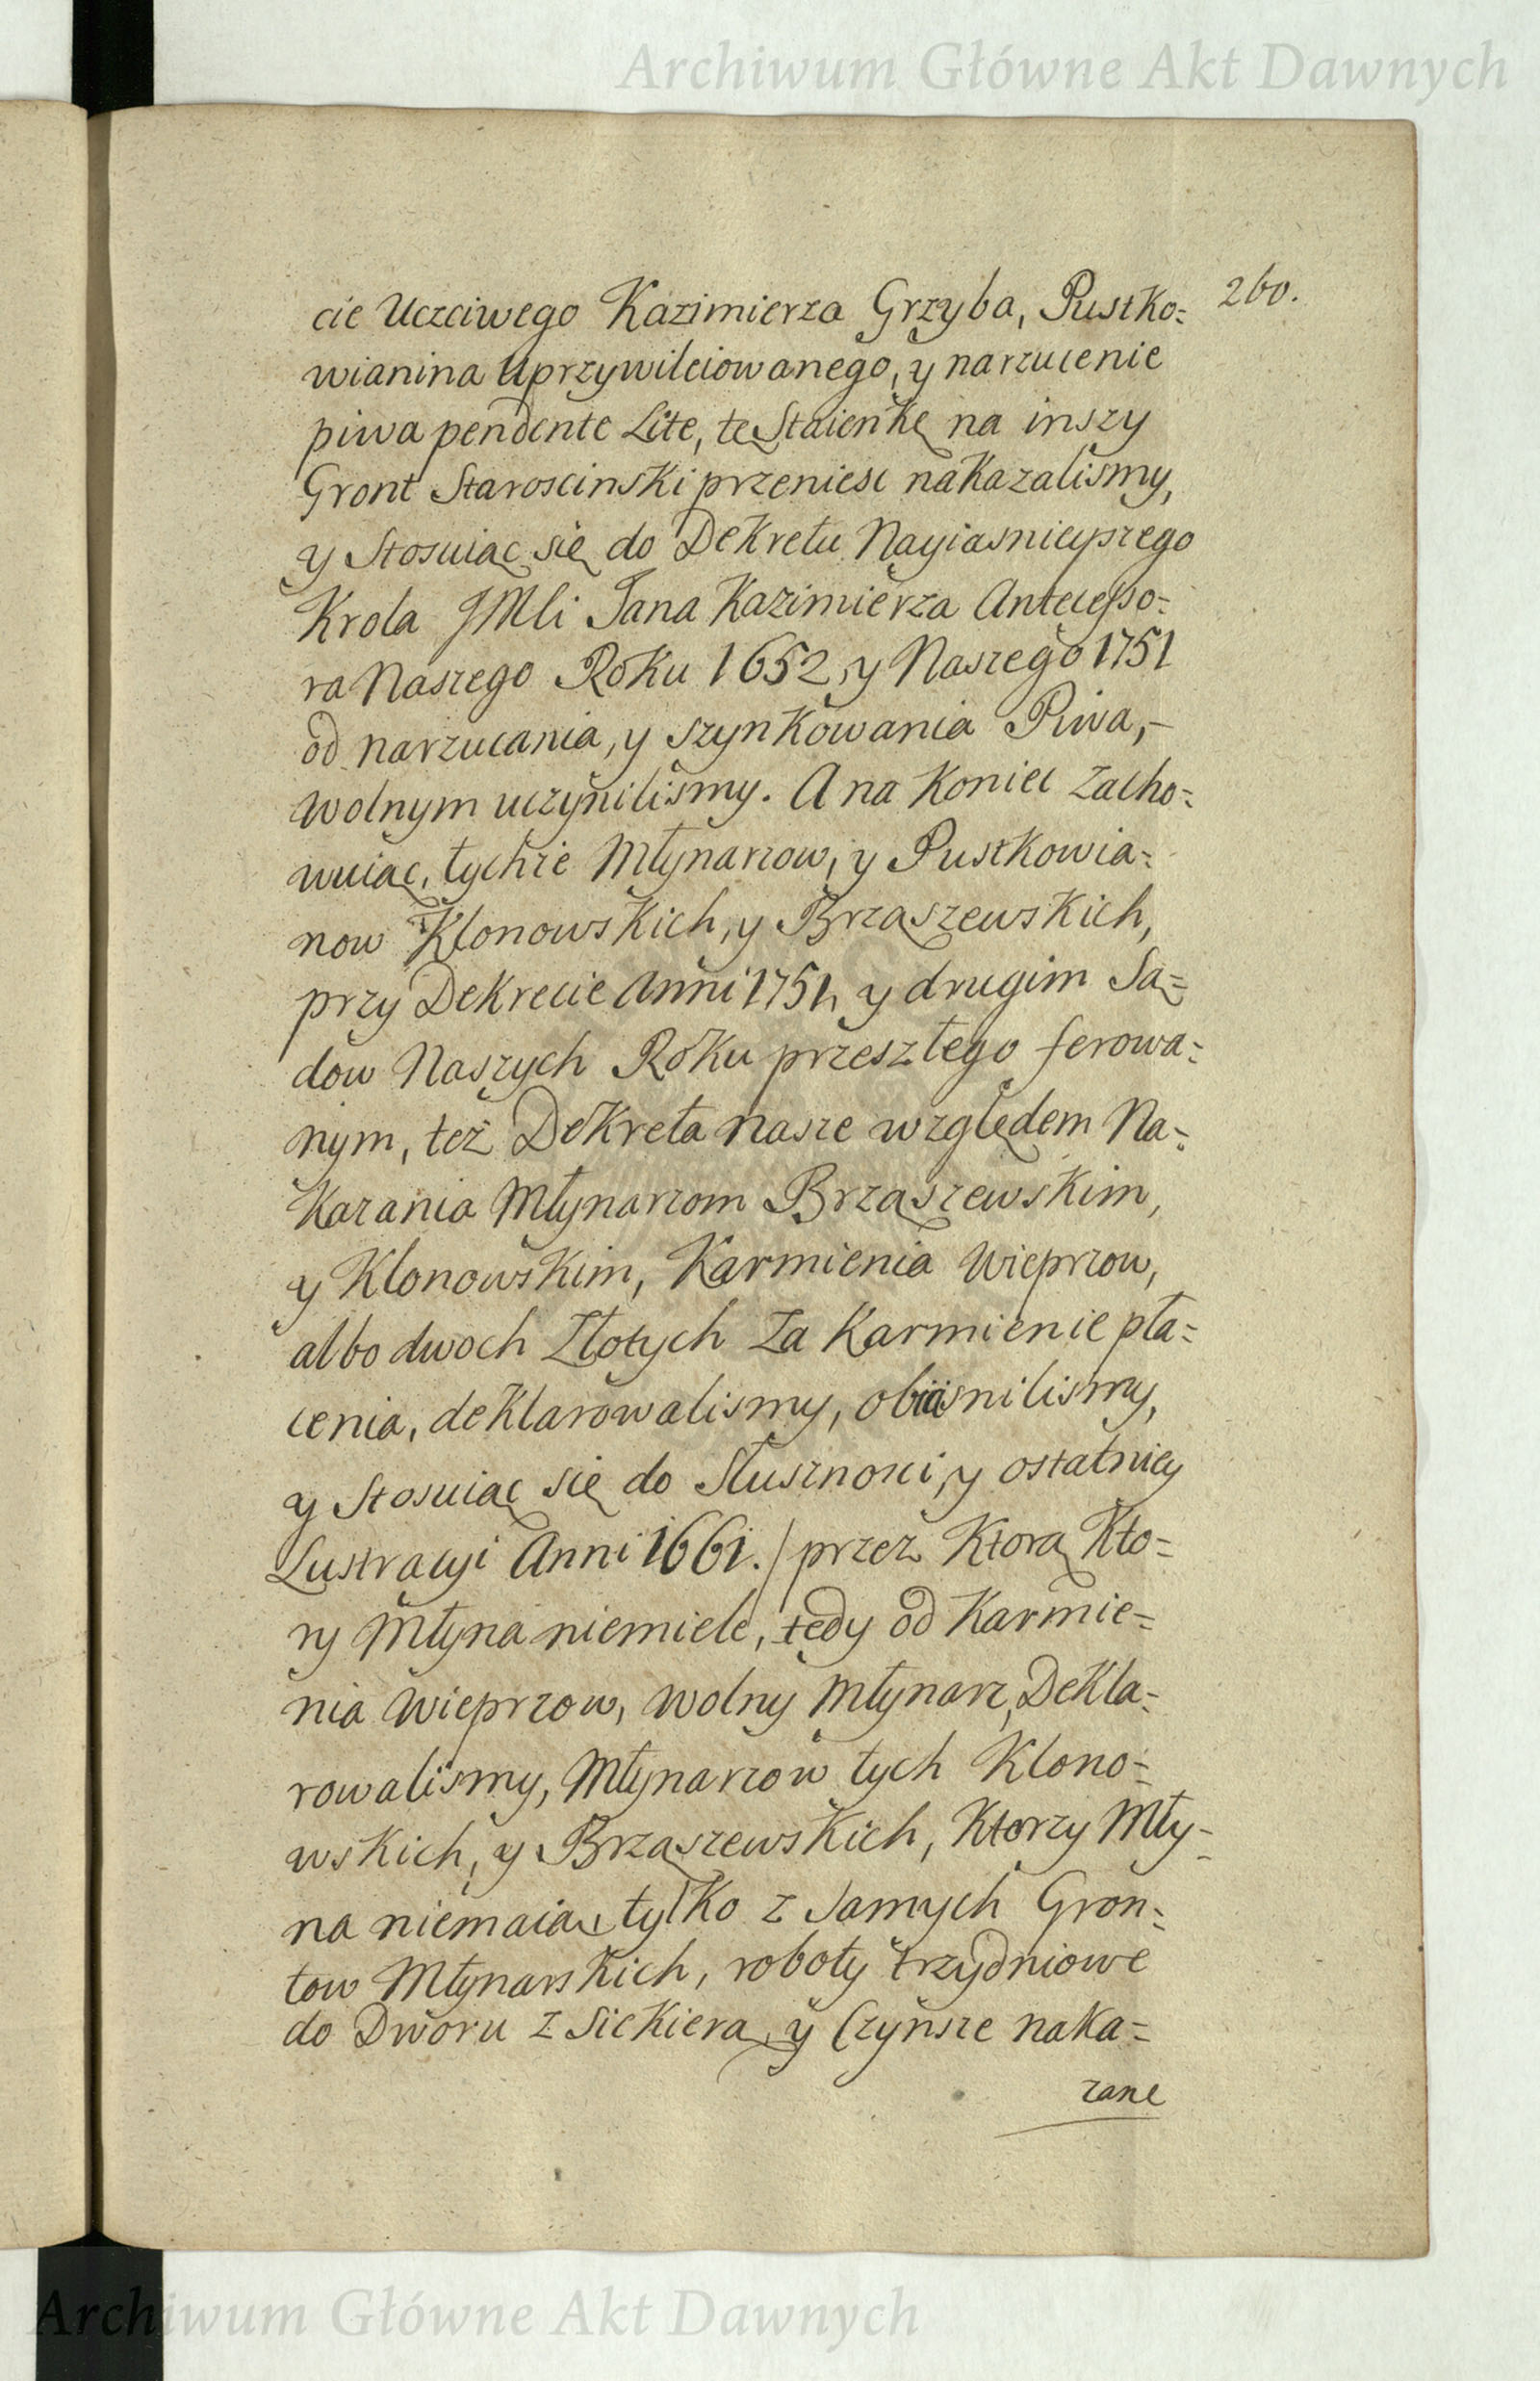 Archiwum Główne Akt Dawnych
260.
cie Uczciwego Kazimierza Grzyba, Pustko=
wianina Uprzywileiowanego, y narzucenie
piwa pendente Lite, tę Staienkę na inszy
Gront Staroscinski przeniesc nakazalismy,
y Stosuiąc się do Dekretu Nayiasnieyszego
Krola JMCi Jana Kazimierza Antecesso=
ra Naszego Roku 1652, y Naszego 1751
od narzucania, y szynkowania Piwa,–
wolnym uczynilismy. A na koniec zacho=
wuiąc, tychże Młynarzow, y Pustkowia=
now Klonowskich, y Brząszewskich,
przy Dekrecie Anni 1751, y drugim Są=
dow Naszych Roku przeszłego ferowa=
nym, też Dekreta nasze względem Na=
kazania Młynarzom Brząszewskim,
y Klonowskim, Karmienia Wieprzow,
albo dwoch Złotych za karmienie pła=
cenia, deklarowalismy, obiasnilismy,
y Stosuiąc się do Słusznosci, y ostatniey
Lustracyi Anni 1661./ przez Ktorą Kto=
ry Młyna niemiele, tedy od Karmie=
nia Wieprzow, wolny Młynarz, Dekla=
rowalismy, Młynarzow tych Klono=
wskich, y Brząszewskich, Ktorzy Mły=
na niemaią, tylko z Samych Gron=
tow Młynarskich, roboty trzydniowe
do Dworu z Siekierą, y Czynsze naka=
zane
Archiwum Główne Akt Dawnych